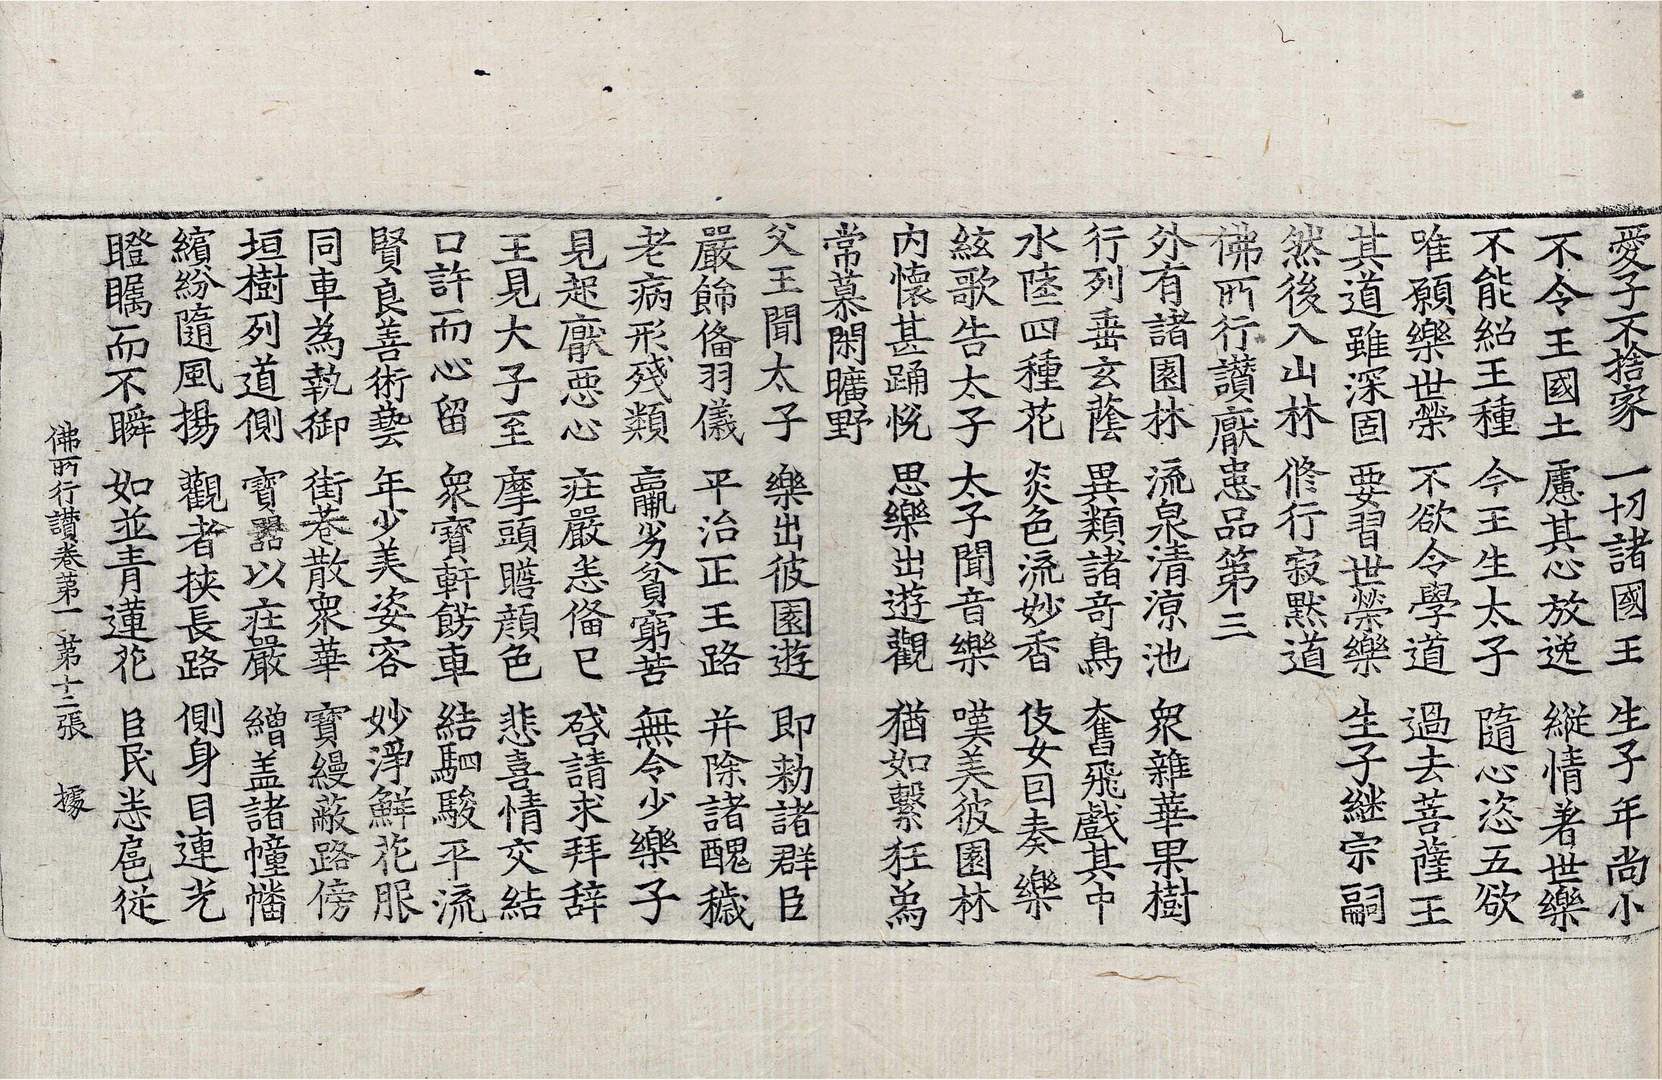 愛子不捨家　一切諸國王　生子年尚小
不令王國土　慮其心放逸　縱情著世樂
不能紹王種　今王生太子　隨心恣五欲
唯願樂世榮　不欲令學道　過去菩薩王
其道雖深固　要習世榮樂　生子継宗嗣
然後入山林　修行寂默道
佛所行讃厭患品第三
外有諸園林　流泉清涼池　衆雜華果樹
行列垂玄蔭　異類諸奇鳥　奮飛戲其中
水陸四種花　炎色流妙香　伎女因奏樂
絃歌告太子　太子聞音樂　嘆美彼園林
内懷甚踊悅　思樂出遊觀　猶如繫狂象
常慕閑曠野
父王聞太子　樂出彼園遊　即勑諸群臣
嚴飾俻羽儀　平治正王路　并除諸醜穢
老病形殘類　羸劣貧窮苦　無令少樂子
見起厭惡心　莊嚴悉俻已　啓請求拜辞
王見太子至　摩頭瞻顔色　悲喜情交結
口許而心留　衆寶軒飾車　結駟駿平流
賢良善術藝　年少美姿容　妙淨鮮花服
同車為執御　街巷散衆華　寶縵蔽路傍
垣樹列道側　寶器以莊嚴　繒盖諸幢幡
繽紛隨風揚　觀者挾長路　側身目連光
瞪矚而不瞬　如並青蓮花　臣民悉扈従
佛所行讃卷第一　第十二張　據